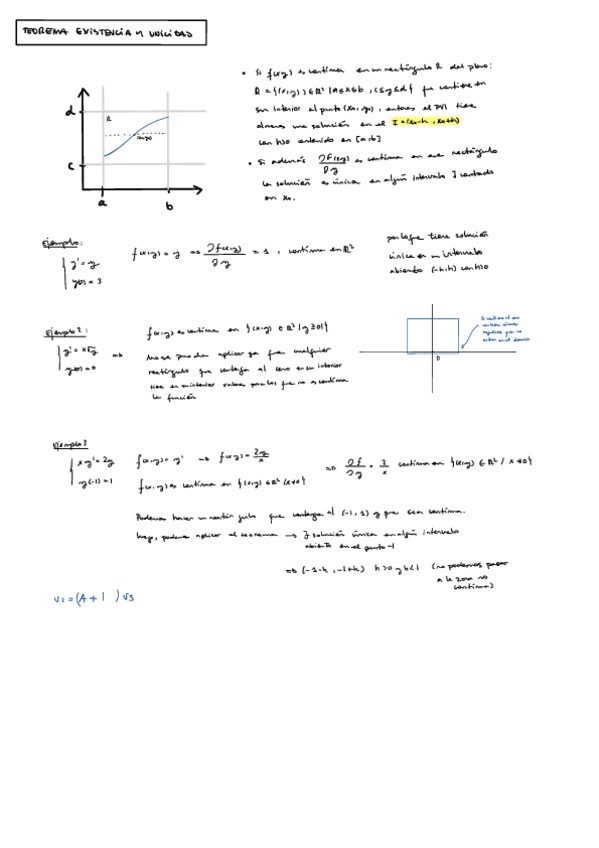 TEOREMA EXISTENCIA Y UNICIDAD
• Si f(x,y) es continua en un rectángulo R del plano:
R = {(x,y) ∈ R² | a≤x≤b , c≤y≤d} que contiene en
su interior al punto (x0, y0), entonces el PVI tiene
al menos una solución en el I = (x0-h, x0+h)
con h>0 contenido en [a,b]
• Si además ∂f(x,y)/∂y es continua en ese rectángulo
la solución es única en algún intervalo I centrado
en x0.
d
R
(x0,y0)
c
a b
Ejemplo:
{ y' = y
y(0) = 3
f(x,y) = y ⇒ ∂f(x,y)/∂y = 1 , continua en R²
por lo que tiene solución
única en un intervalo
abierto (-h,h) con h>0
Ejemplo 2:
{ y' = x√y
y(0) = 0
⇒
f(x,y) es continua en {(x,y) ∈ R² | y≥0}
No se puede aplicar ya que cualquier
rectángulo que contenga al cero en su interior
tiene en su interior valores para los que no es continua
la función
0
Ejemplo 3
{ xy' = 2y
y(-1) = 1
f(x,y) = y' → f(x,y) = 2y/x
⇒ ∂f/∂y = 2/x continua en {(x,y) ∈ R² / x≠0}
f(x,y) es continua en {(x,y) ∈ R² / x≠0}
Podemos hacer un rectángulo que contenga al (-1,1) y que sea continua.
luego, podemos aplicar el teorema ⇒ ∃ solución única en algún intervalo
abierto en el punto -1
⇒ (-1-h, -1+h) h>0 y h<1 (no podemos pasar
a la zona no
continua)
v2 = (A + 1 ) v3